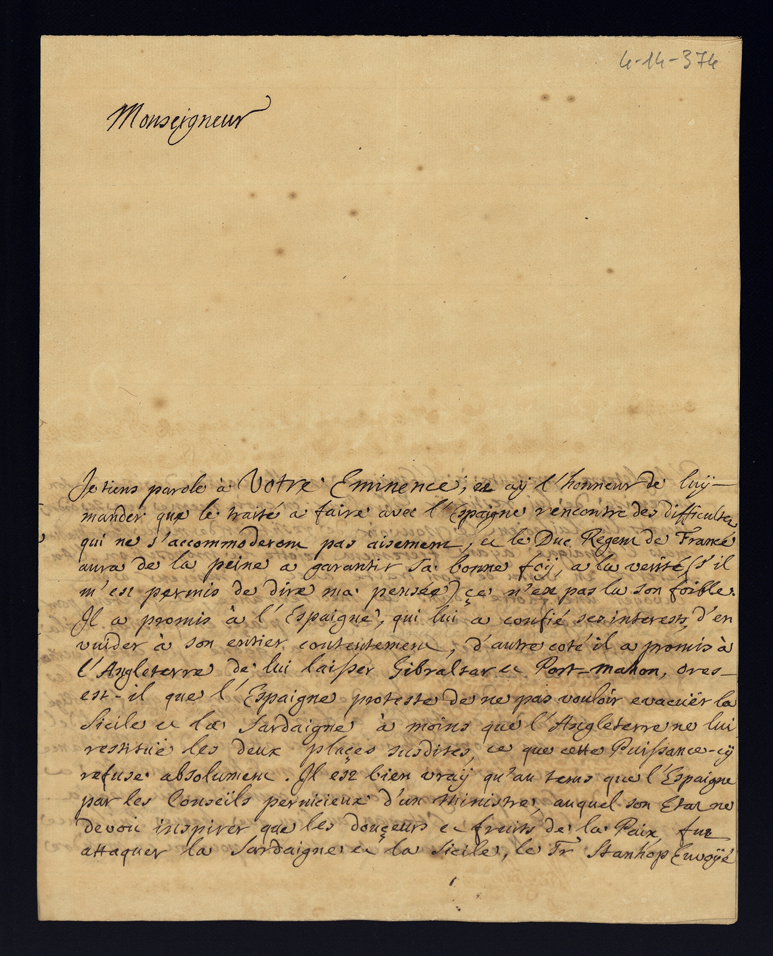 4-14-374
Monseigneur
Je tiens parole à Votre Eminence, et aÿ l'honneur de luÿ
mander que le traité a faire avec l'Epaigne rencontre des difficultes
qui ne s'accommoderont pas aisement, et le Duc Regent de France
aura de la peine a garantir sa bonne foÿ, a la verité (s'il
m'est permis de dire ma pensée) çe n'est pas la son foible.
Il a promis à l'Espaigne, qui lui a confié ses interests, d'en
vuider à son entier contentement, d'autre coté il a promis à
l'Angleterre de lui laisser Gibraltar et Port-mahon, ores
est-il que l'Espaigne proteste de ne pas vouloir evacuër la
Sicile et la Sardaigne à moins que l'Angleterre ne lui
restitue les deux plaçes susdites, ce que cette Puissance-cÿ
refuse absolument. Il est bien vraÿ qu'au tems que l'Espaigne
par les Conseils pernicieux d'un Ministre auquel son Etat ne
devoit inspirer que les douçeurs et fruits de la Paix, fut
attaquer la Sardaigne et la Sicile, le Sr Stanhop Envoÿé